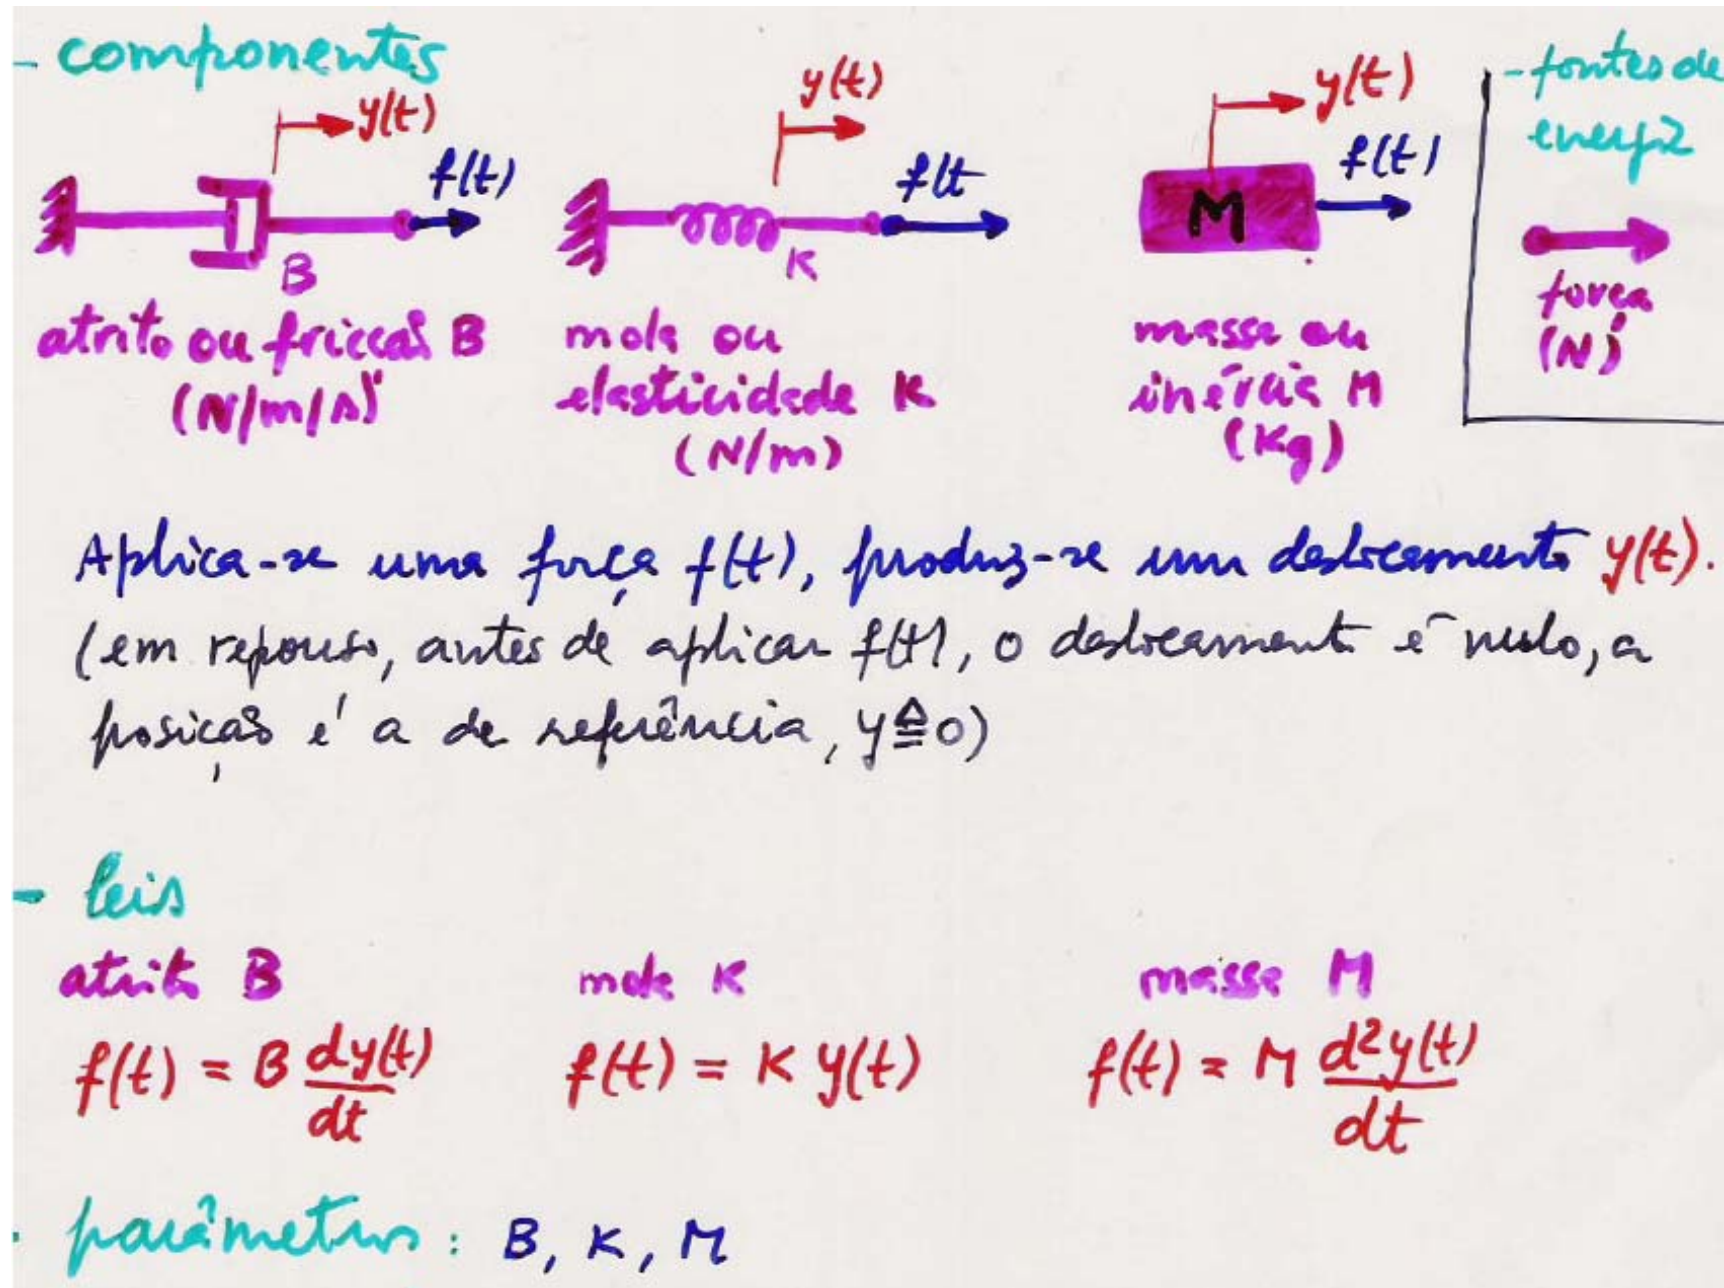 - componentes
y(t)
f(t)
B
atrito ou fricção B
(N/m/s)
y(t)
f(t
K
mola ou
elasticidade K
(N/m)
y(t)
f(t)
M
massa ou
inércia M
(Kg)
- fontes de
energia
força
(N)
Aplica-se uma força f(t), produz-se um deslocamento y(t).
(em repouso, antes de aplicar f(t), o deslocamento é nulo, a
posição é a de referência, y≜0)
- leis
atrito B
f(t) = B dy(t)/dt
mola K
f(t) = K y(t)
massa M
f(t) = M d²y(t)/dt
- parâmetros: B, K, M